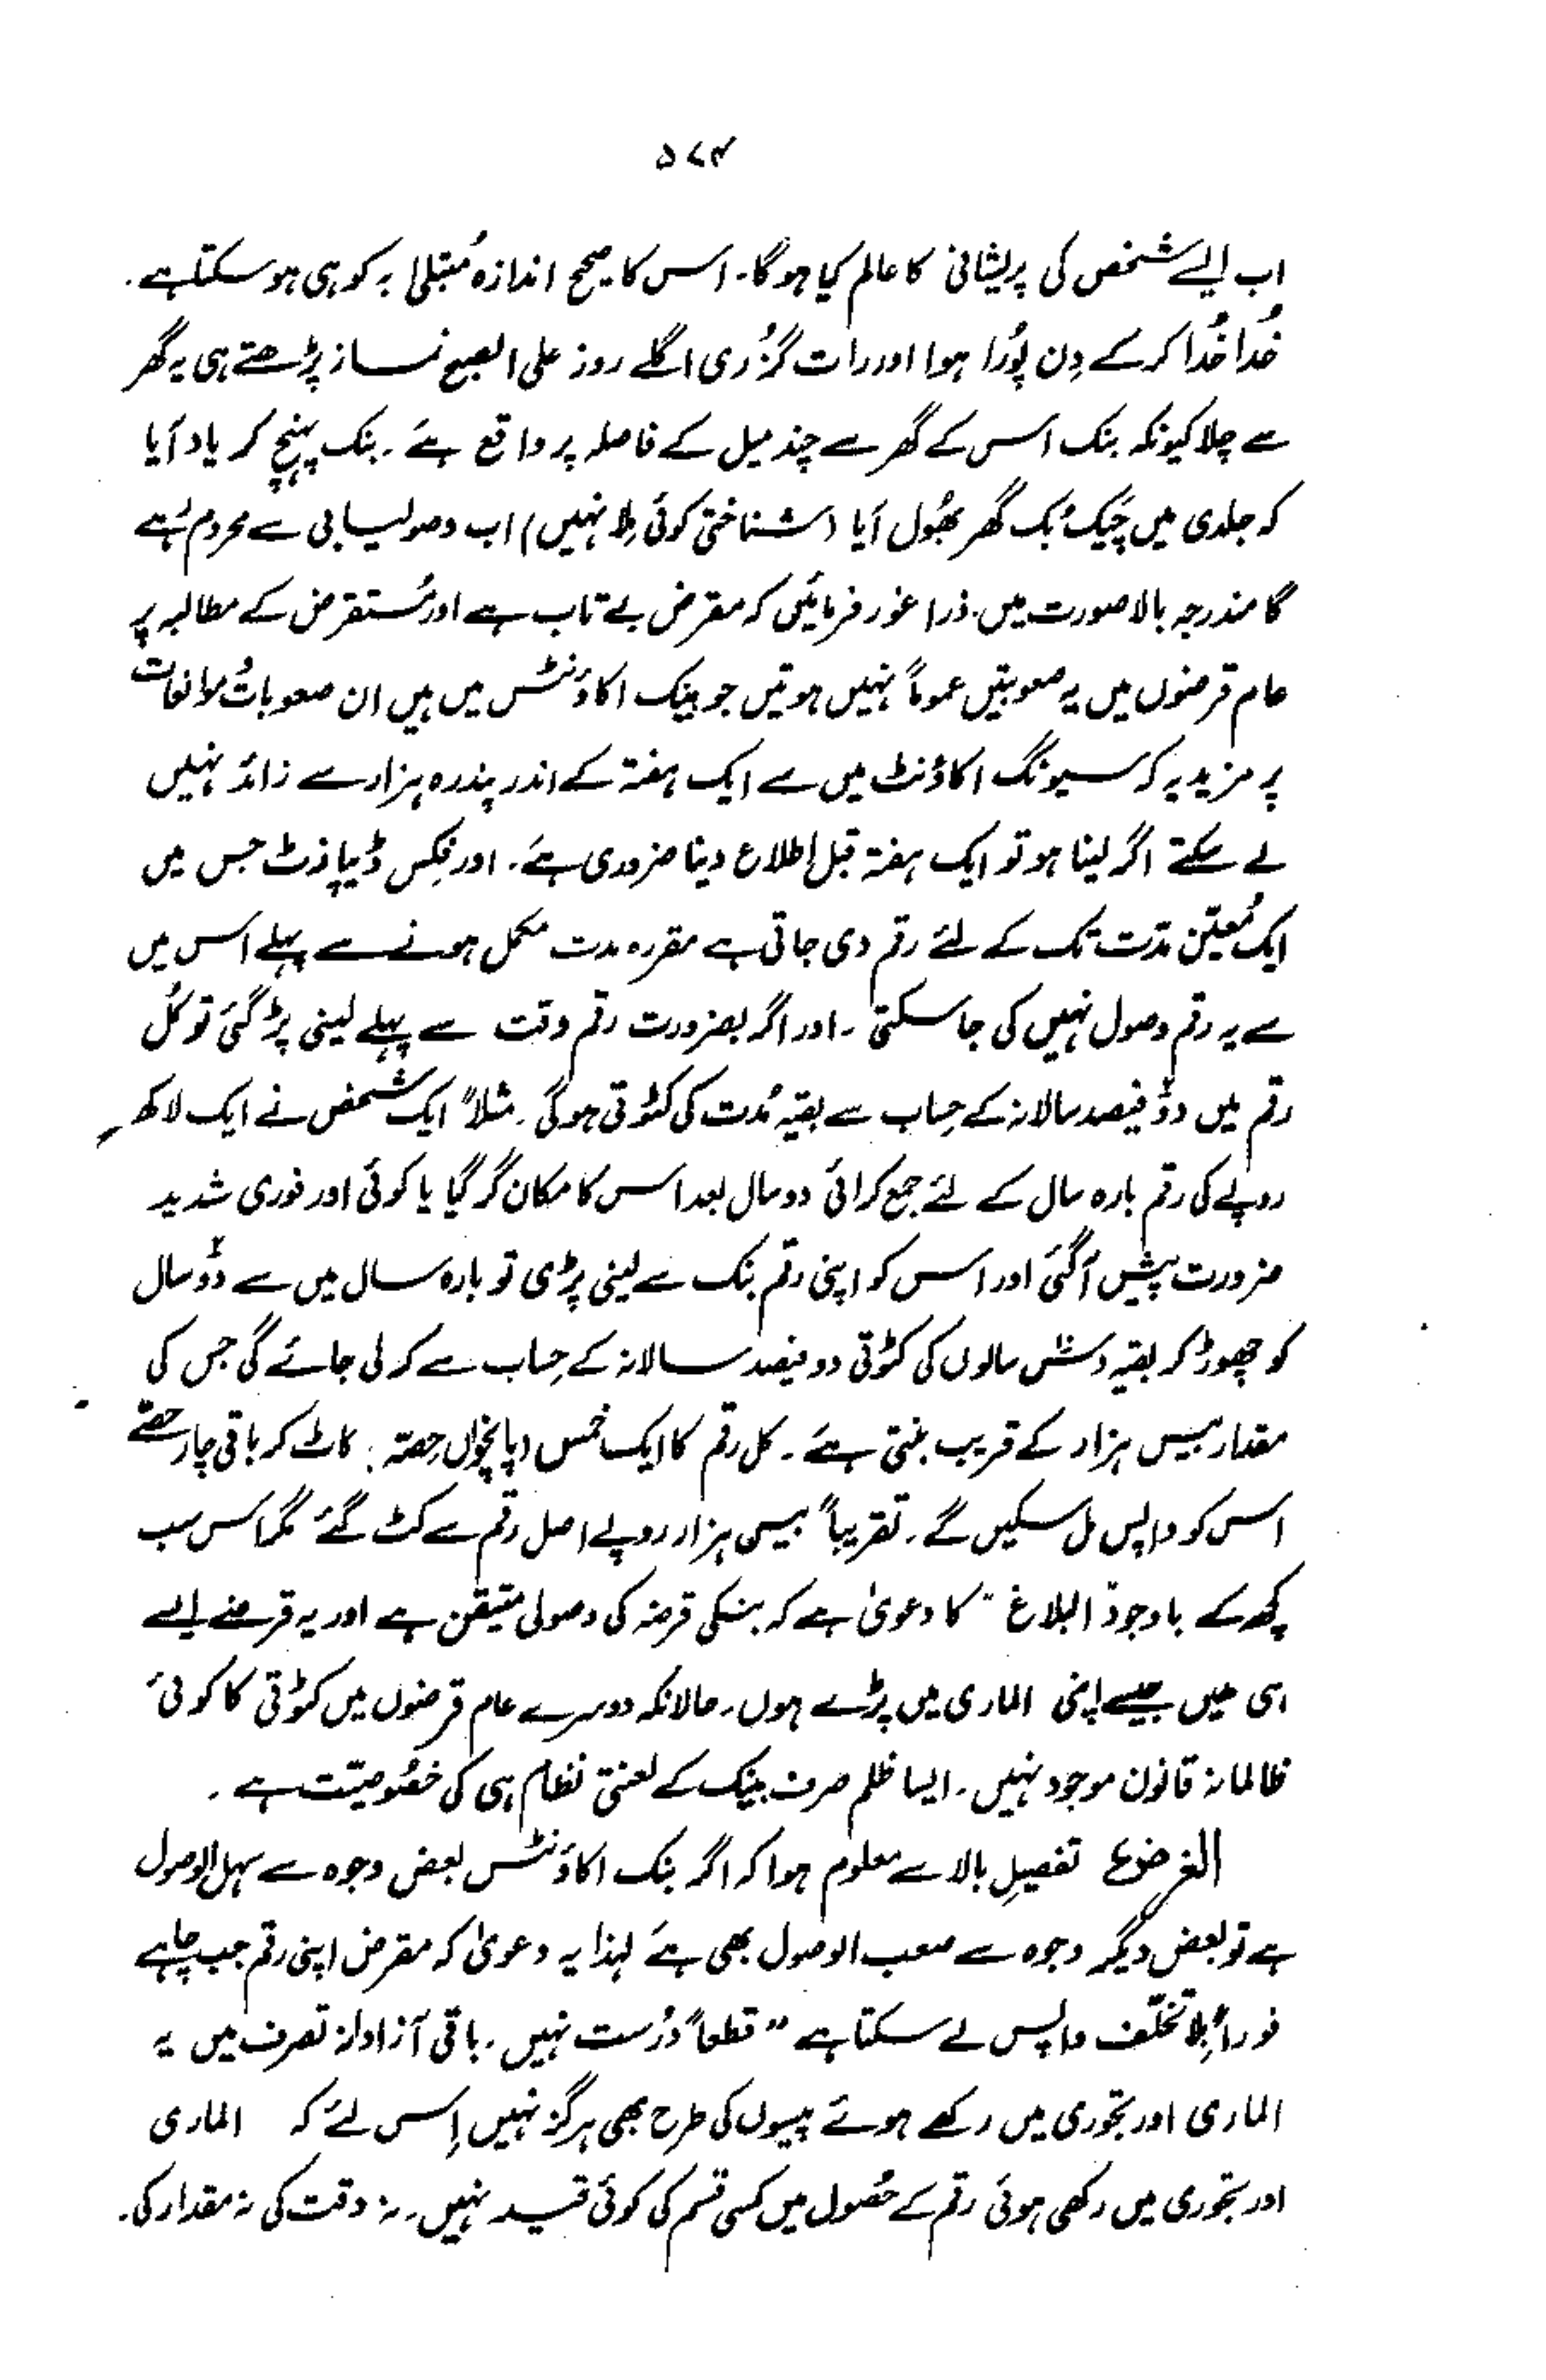 ۵۷۴
اب ایسے شخص کی پریشانی کا عالم کیا ہوگا۔ اس کا صحیح اندازہ مُبتلیٰ بہ کو ہی ہو سکتا ہے۔
خُدا خُدا کرکے دِن پُورا ہوا اور رات گزُری اگلے روز علی الصبح نماز پڑھتے ہی یہ گھر
سے چلا کیونکہ بنک اس کے گھر سے چند میل کے فاصلہ پر واقع ہے۔ بنک پہنچ کر یاد آیا
کہ جلدی میں چَیک بُک گھر بھُول آیا (شناختی کوئی مِلا نہیں) اب وصولیابی سے محروم رہے
گا مندرجہ بالا صورت میں۔ ذرا غور فرمائیں کہ مقرض بے تاب ہے اور مُستقرض کے مطالبہ پر
عام قرضوں میں یہ صعوبتیں عموماً نہیں ہوتیں جو بینک اکاؤنٹس میں ہیں ان صعوبات و موانعات
پر مزید یہ کہ سیونگ اکاؤنٹ میں سے ایک ہفتہ کے اندر پندرہ ہزار سے زائد نہیں
لے سکتے اگر لینا ہو تو ایک ہفتہ قبل اطلاع دینا ضروری ہے۔ اور فِکس ڈیپازٹ جس میں
ایک مُعیّن مدّت تک کے لئے رقم دی جاتی ہے مقررہ مدت مکمل ہونے سے پہلے اس میں
سے یہ رقم وصول نہیں کی جا سکتی۔ اور اگر بضرورت رقم وقت سے پہلے لینی پڑ گئی تو کُل
رقم میں دوؔ فیصد سالانہ کے حِساب سے بقیہ مُدت کی کٹوتی ہوگی۔ مثلاً ایک شخص نے ایک لاکھ
روپے کی رقم بارہ سال کے لئے جمع کرائی دو سال بعد اس کا مکان گر گیا یا کوئی اور فوری شدید
ضرورت پیش آگئی اور اس کو اپنی رقم بنک سے لینی پڑی تو بارہ سال میں سے دوؔ سال
کو چھوڑ کر بقیہ دسؔ سالوں کی کٹوتی دو فیصد سالانہ کے حِساب سے کر لی جائے گی جس کی
مقدار بیس ہزار کے قریب بنتی ہے۔ کل رقم کا ایک خمس (پانچواں حِصّہ) کاٹ کر باقی چار حصّے
اس کو واپس مل سکیں گے۔ تقریباً بیس ہزار روپے اصل رقم سے کٹ گئے مگر اس سب
کچھ کے باوجود "البلاغ" کا دعویٰ ہے کہ بنکی قرضہ کی وصولی متیقن ہے اور یہ قرضے ایسے
ہی ہیں جیسے اپنی الماری میں پڑے ہوں۔ حالانکہ دوسرے عام قرضوں میں کٹوتی کا کوئی
ظالمانہ قانون موجود نہیں۔ ایسا ظلم صرف بینک کے لعنتی نظام ہی کی خصُوصیّت ہے۔
الغرض تفصیلِ بالا سے معلوم ہوا کہ اگر بنک اکاؤنٹس بعض وجوہ سے سہل الوصول
ہے تو بعض دیگر وجوہ سے صعب الوصول بھی ہے لہٰذا یہ دعویٰ کہ مقرض اپنی رقم جب چاہے
فوراً بِلا تخلّف واپس لے سکتا ہے" قطعاً دُرست نہیں۔ باقی آزادانہ تصرف میں یہ
الماری اور تجوری میں رکھے ہوئے پیسوں کی طرح بھی ہرگز نہیں اِس لئے کہ الماری
اور تجوری میں رکھی ہوئی رقم کے حصُول میں کسی قسم کی کوئی قید نہیں۔ نہ وقت کی نہ مقدار کی۔